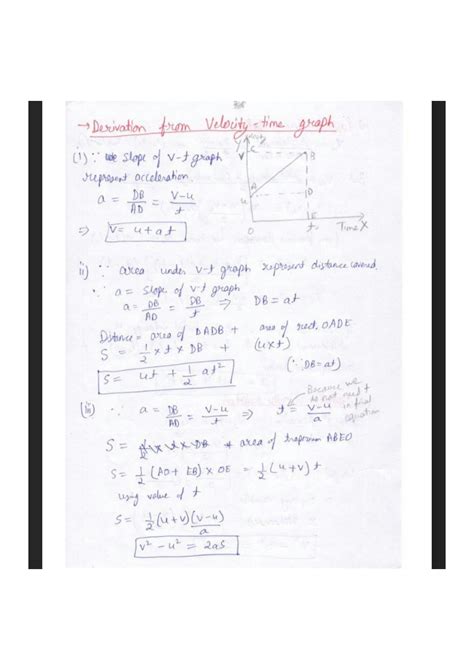 → Derivation from Velocity-time graph
(i) ∵ slope of v-t graph
represent acceleration.
a = DB/AD = v-u/t
⇒ v = u + at
V C B
A D
u
O E t
Time X
ii) ∵ area under v-t graph represent distance covered.
∵ a = slope of v-t graph
a = DB/AD = DB/t ⇒ DB = at
Distance = area of ΔADB + area of rect. OADE
S = 1/2 × t × DB + (u×t)
S = ut + 1/2 at² (∵ DB = at)
(iii) ∵ a = DB/AD = v-u/t ⇒ t = v-u/a
Because we do not need t in final equation
S = area of trapezium ABEO
S = 1/2 (AO + EB) × OE = 1/2 (u+v) t
using value of t
S = 1/2 (u+v)(v-u)/a
v² - u² = 2aS